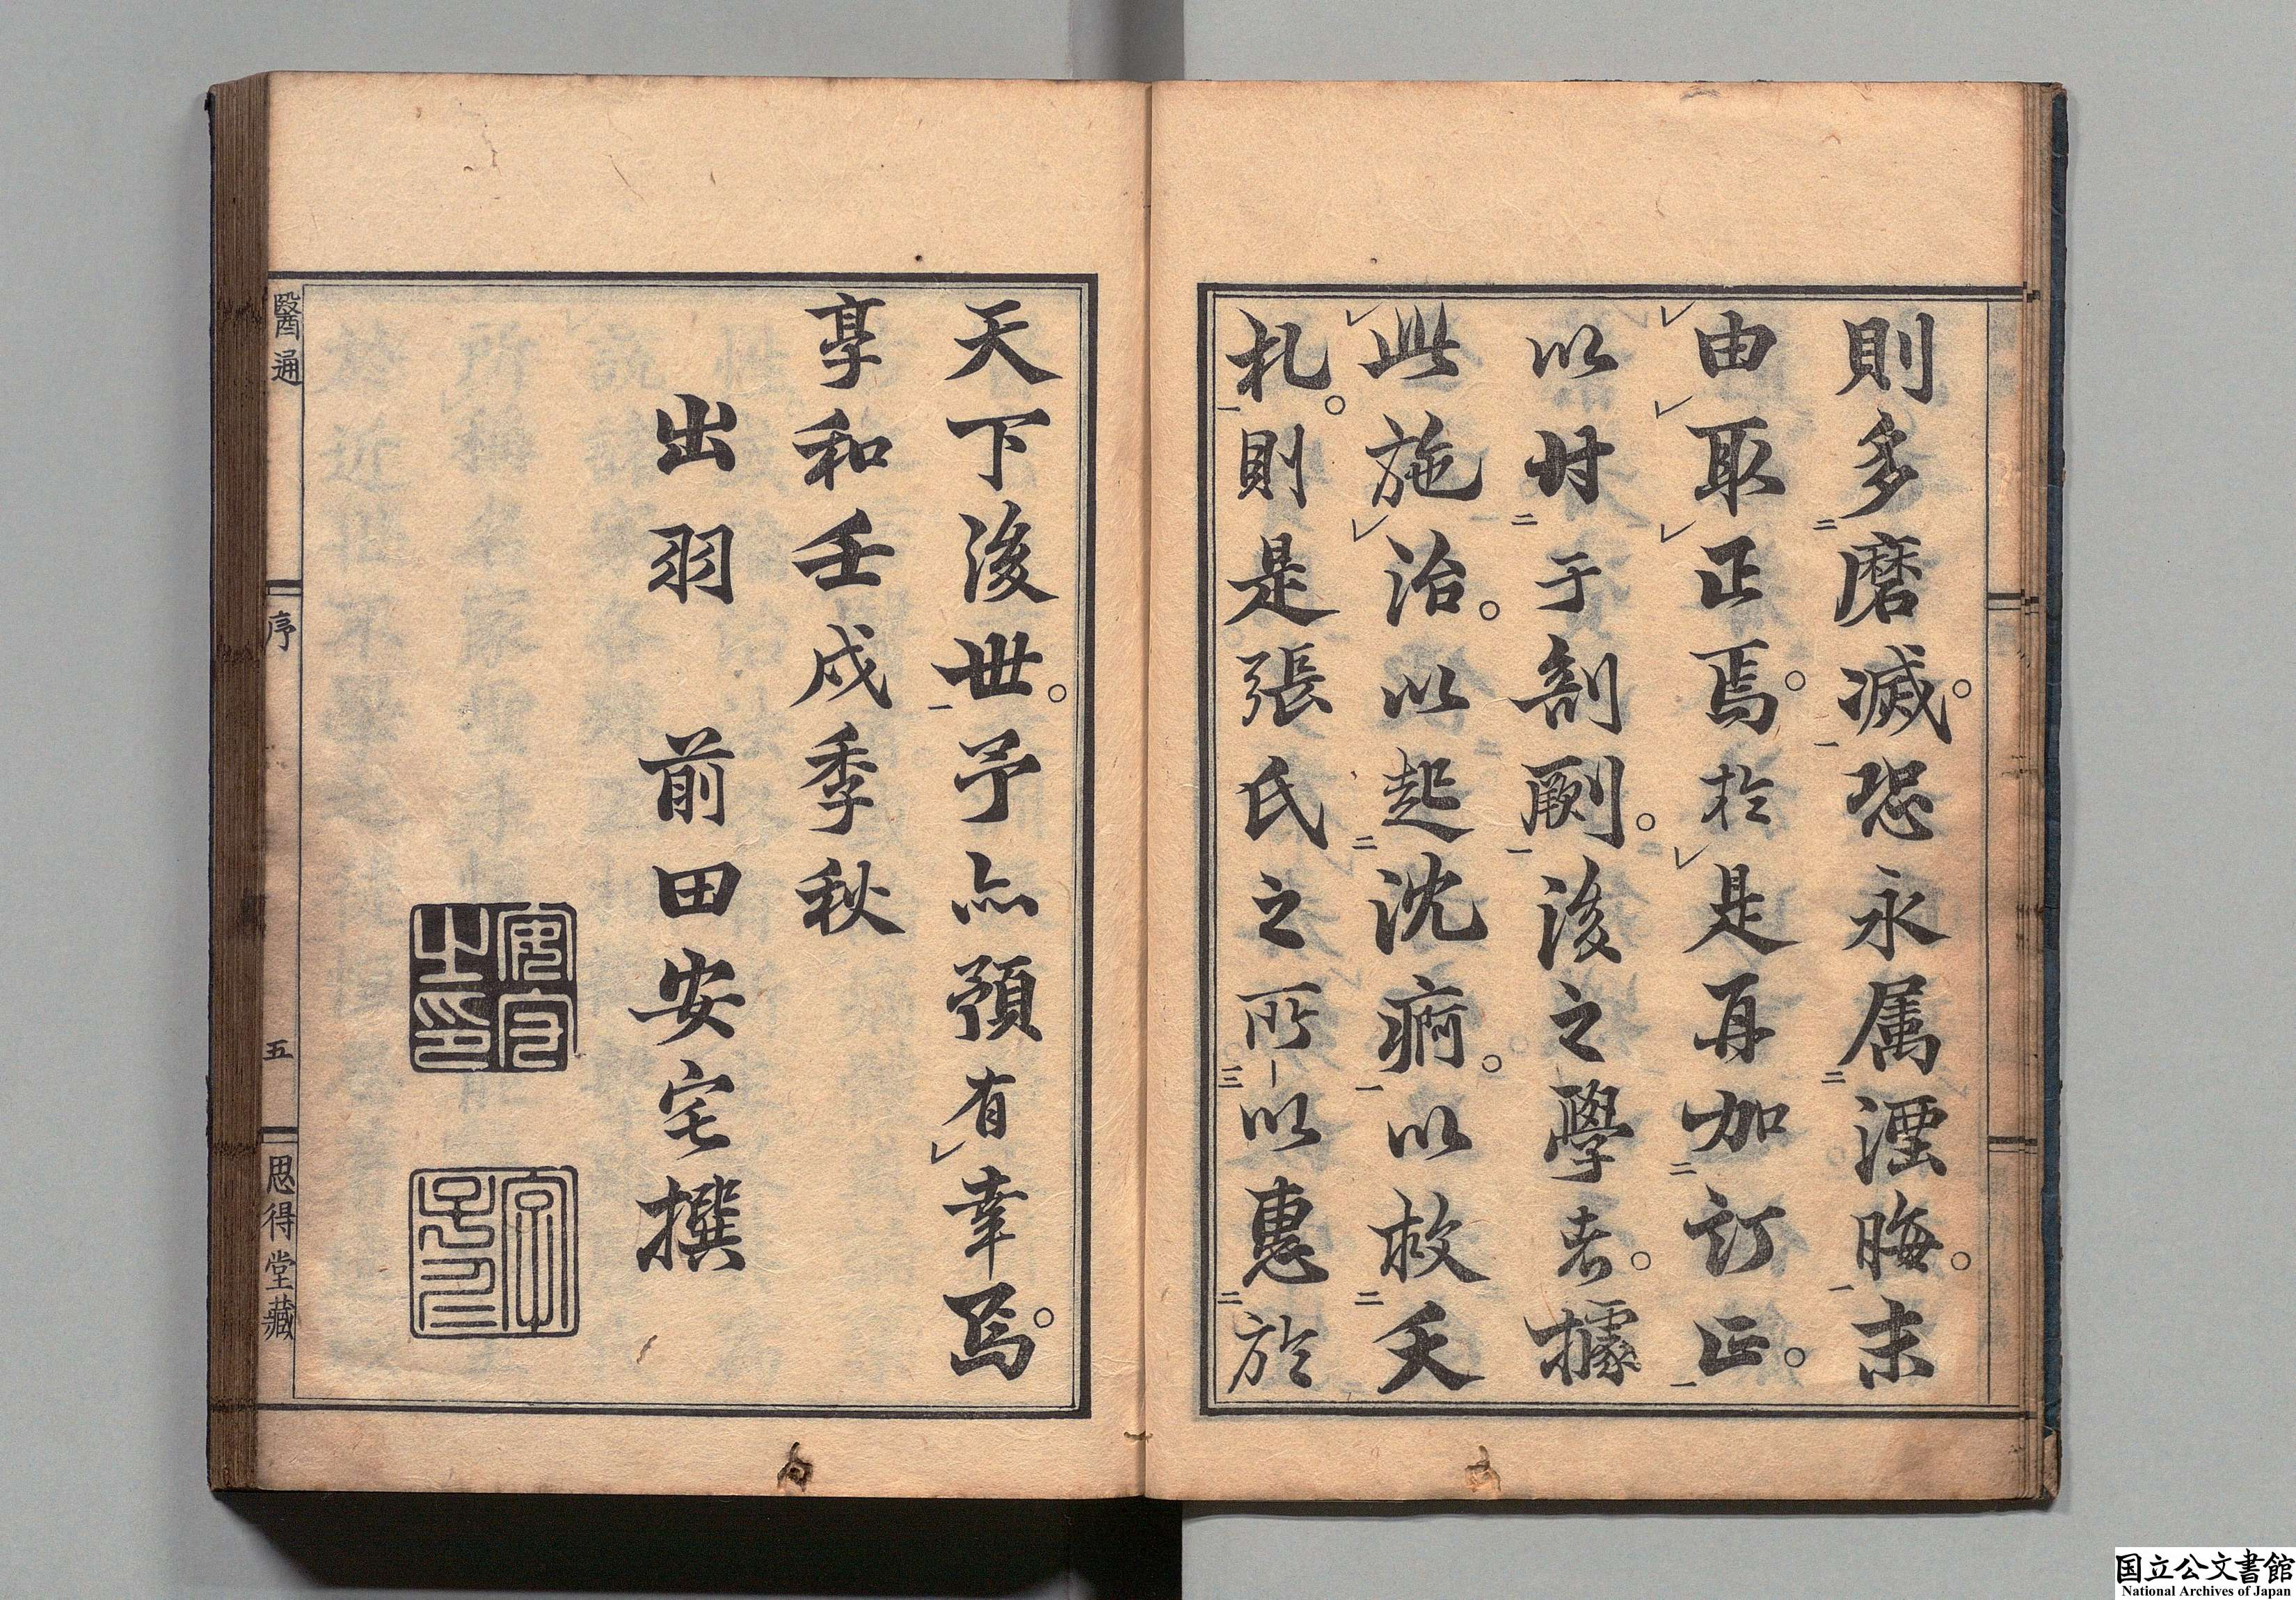 則多磨滅。恐永属湮晦。末
由取正焉。於是再加訂正。
以付于剞劂。後之學者。據
此施治。以起沈痾。以救夭
札。則是張氏之所以惠於
天下後世。予亦預有幸焉。
享和壬戌季秋
出羽 前田安宅撰
安宅之印
醫通 序 五 思得堂藏
国立公文書館
National Archives of Japan